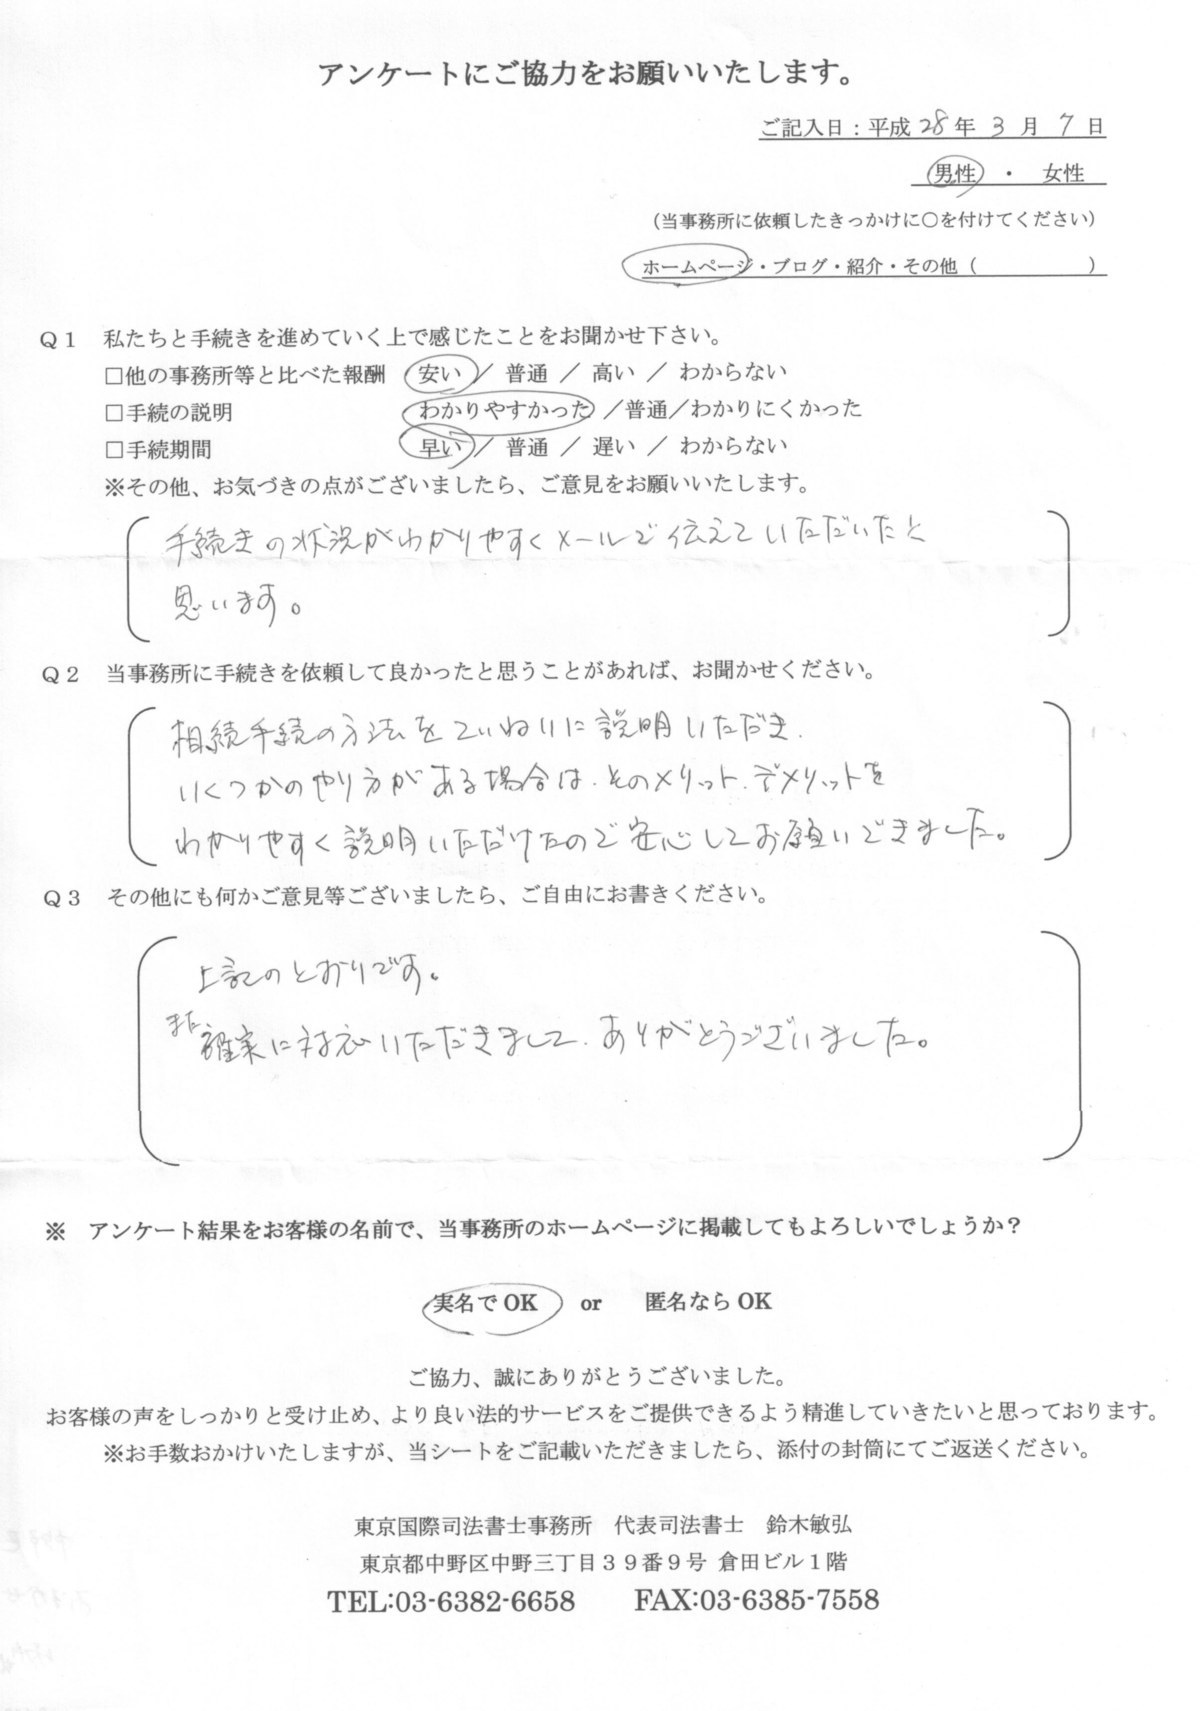 アンケートにご協力をお願いいたします。
ご記入日：平成 28 年 3 月 7 日
男性 ・ 女性
（当事務所に依頼したきっかけに〇を付けてください）
ホームページ・ブログ・紹介・その他（ ）
Ｑ１ 私たちと手続きを進めていく上で感じたことをお聞かせ下さい。
□他の事務所等と比べた報酬 安い ／ 普通 ／ 高い ／ わからない
□手続の説明 わかりやすかった ／普通／わかりにくかった
□手続期間 早い ／ 普通 ／ 遅い ／ わからない
※その他、お気づきの点がございましたら、ご意見をお願いいたします。
手続きの状況がわかりやすくメールで伝えていただいたと
思います。
Ｑ２ 当事務所に手続きを依頼して良かったと思うことがあれば、お聞かせください。
相続手続の方法をていねいに説明いただき、
いくつかのやり方がある場合は、そのメリット、デメリットを
わかりやすく説明いただけたので安心してお願いできました。
Ｑ３ その他にも何かご意見等ございましたら、ご自由にお書きください。
上記のとおりです。
また確実に対応いただきまして、ありがとうございました。
※ アンケート結果をお客様の名前で、当事務所のホームページに掲載してもよろしいでしょうか？
実名で OK or 匿名なら OK
ご協力、誠にありがとうございました。
お客様の声をしっかりと受け止め、より良い法的サービスをご提供できるよう精進していきたいと思っております。
※お手数おかけいたしますが、当シートをご記載いただきましたら、添付の封筒にてご返送ください。
東京国際司法書士事務所 代表司法書士 鈴木敏弘
東京都中野区中野三丁目３９番９号 倉田ビル１階
TEL:03-6382-6658 FAX:03-6385-7558